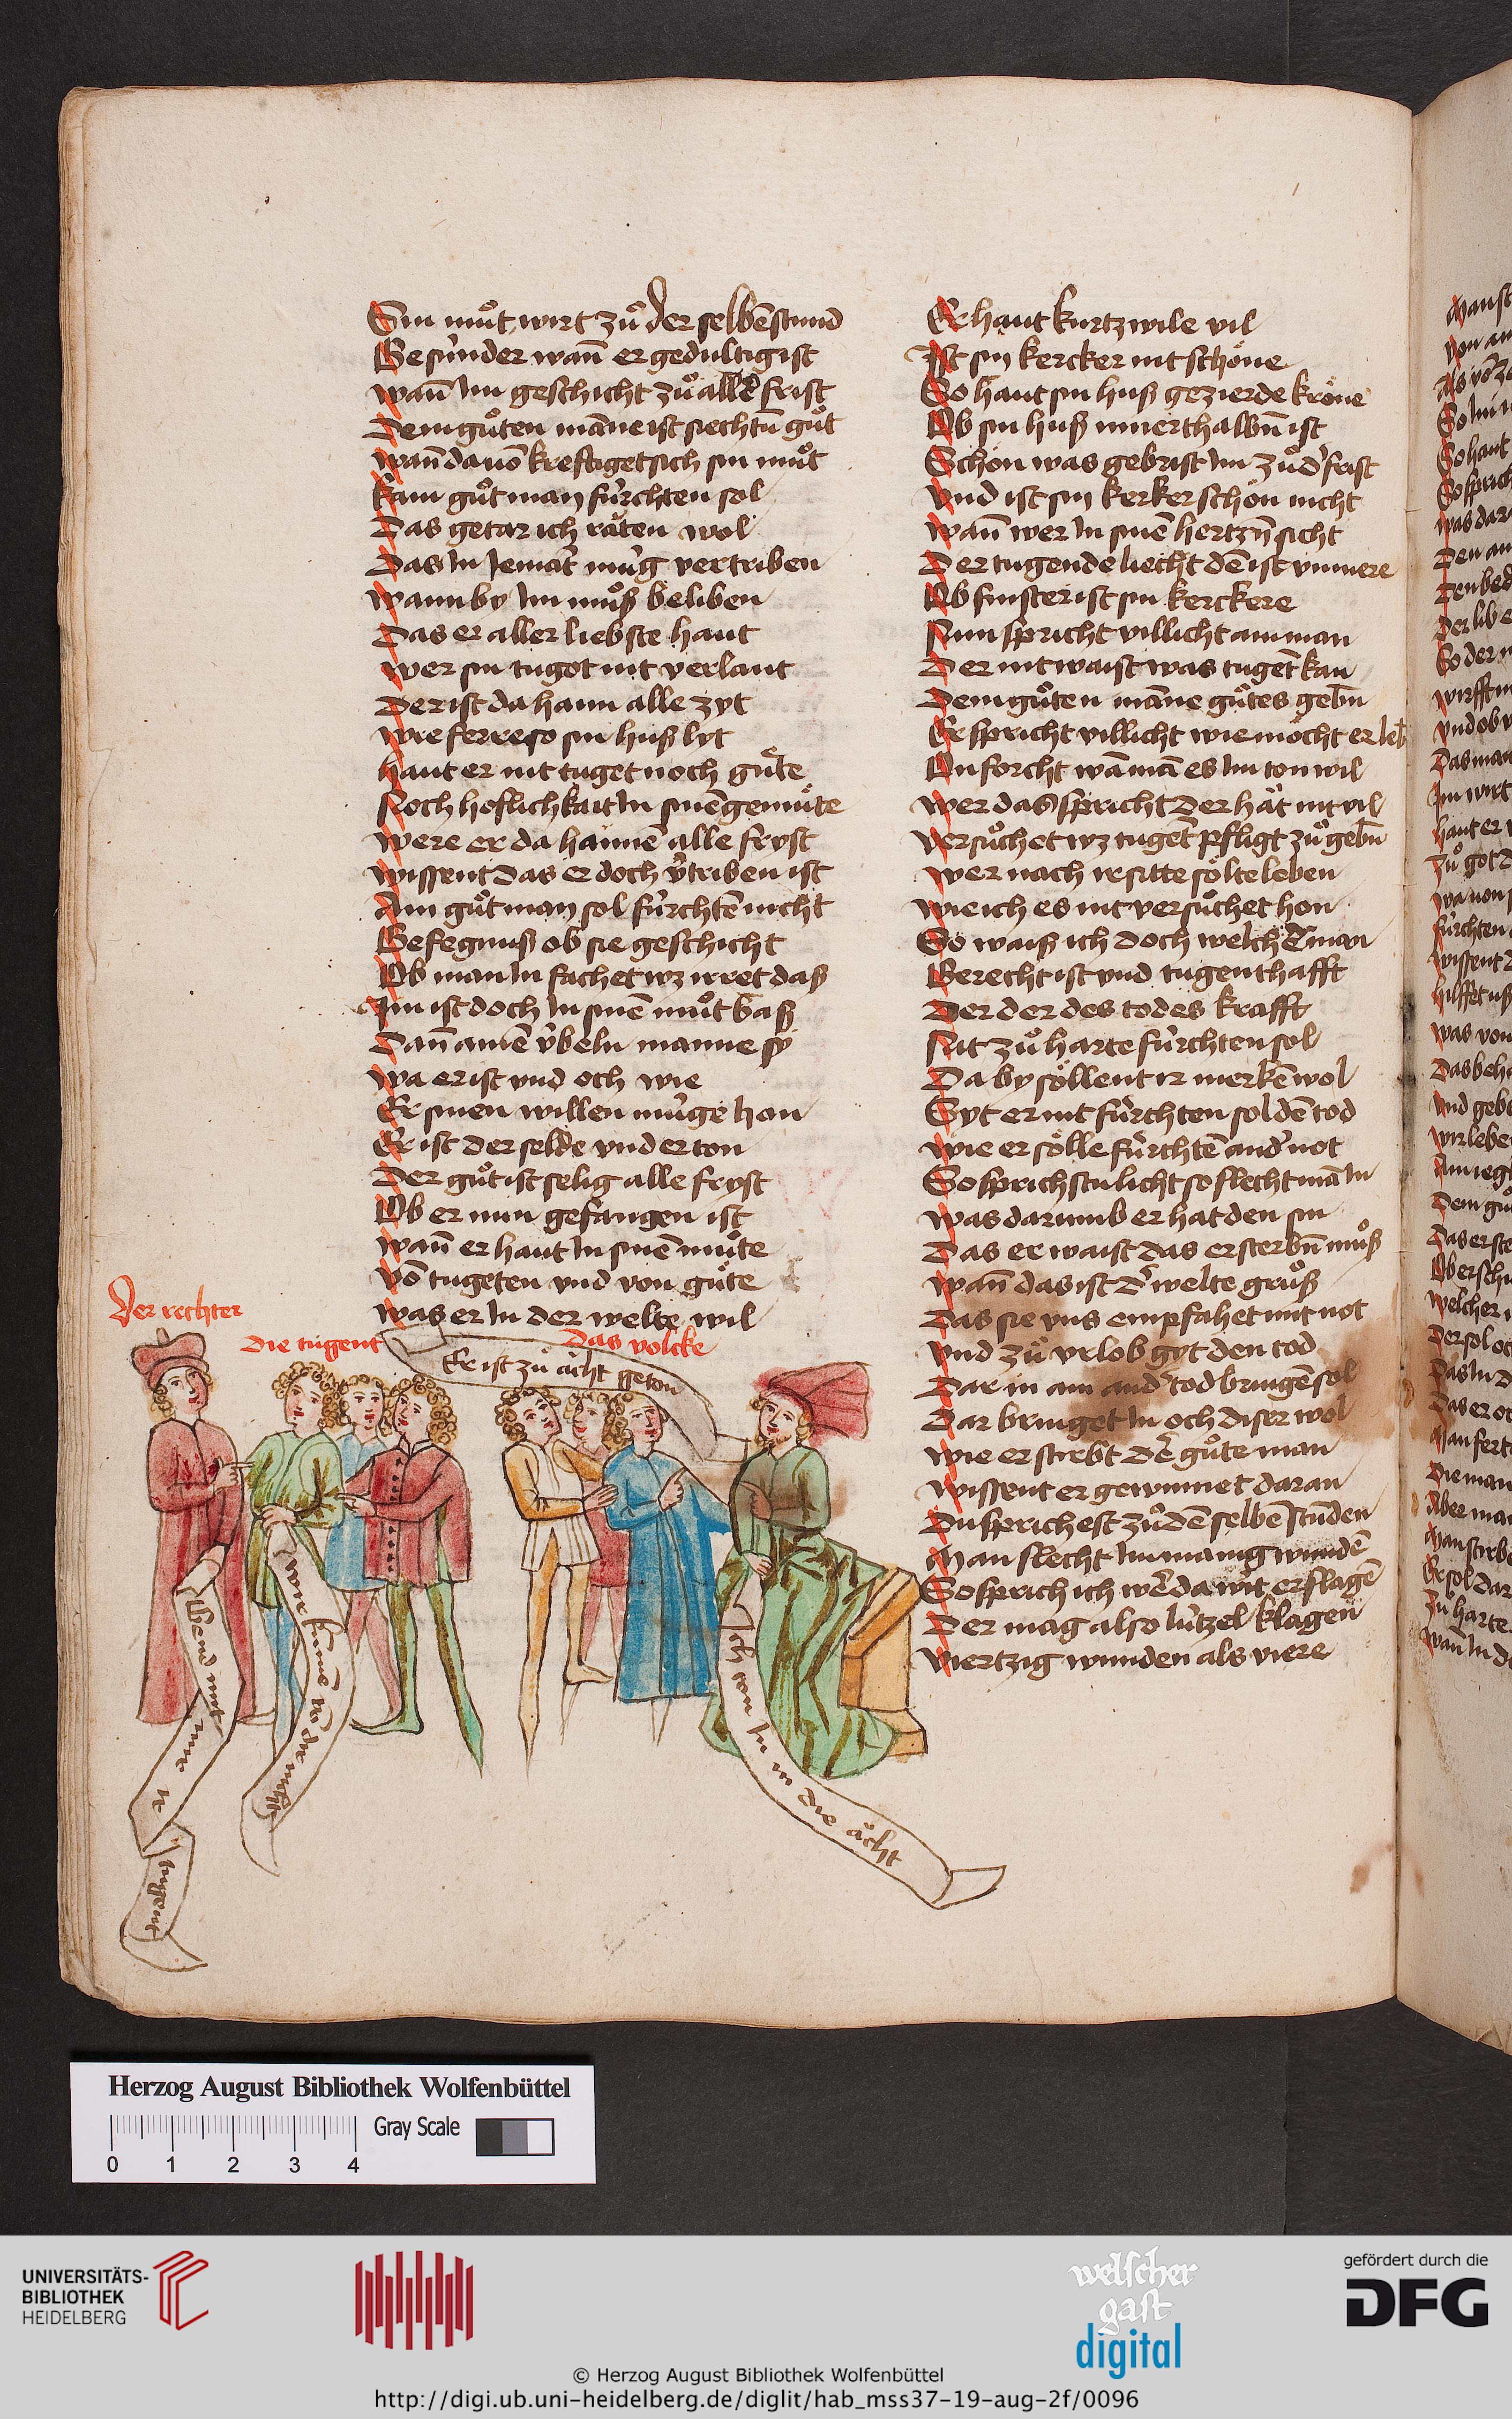 Sin muͦt wirt zuͦ der selbē stund
Besunder wañ er gedultig ist
wañ Im geschicht zuͦ aller frist
Dem guͦten māne ist siechtū guͦt
wañ da uō kreftiget sich sin muͦt
kain guͦt man fürchten sol
Das getar ich räten wol
Das In Iemāt müg vertriben
wann by Im muͦß beliben
Das er aller liebste hant
wer sin tugot nit verlant
Der ist da haim alle zyt
wie ferre so sin huß lyt
hant er nit tuget noch guͤte
Noch hoflichkait In sinē gemuͤte
were er da haimē alle fryst
wissent das er doch v̾triben ist
Ain guͦt man sol fürchtē nicht
Gefegnuß ob sie geschicht
Ob man In fachet wz irret daß
Im ist doch In sinē muͦt baß
Dañ ainē v̈beln manne sy
wa er ist vnd och wie
Er sinen willen müge han
Er ist der selde vnderton
Der guͦt ist selig alle fryst
Ob er nun gefangen ist
wañ er hant In sinē muͦte
vō tugeten vnd von guͤte
was er In der welte wil
Der rechter
Die tugent
Das volcke
Er ist zu acht geton
Ich ton In in die ächt
tugent
Er hant kurtzwile vil
Ist sin kercker nit schöne
So hant sin huß gezierde kröne
Ob sin huß innerthalbn̄ ist
Schön was gebrist Im zuͦ d̾ frist
Vnd ist sin kerker schön nicht
wañ wer In sinē hertzn̄ sicht
Der tugende liecht dē ist vnmere
Ob finster ist sin kerckere
Nun spricht villicht ain man
Der nit waist was tuget̄ kan
Dem guͦten māne guͦtes gebn̄
Er spricht villicht wie möcht er leb
On forcht wā mā es Im ton wil
wer das spricht der hät nit vil
versuͦchet wz tuget̄ pfligt zuͦ gebn̄
wer nach ir sitte sölte leben
wie ich es nit versuͦchet hon
So waiß ich doch welch̾ man
Gerecht ist vnd tugenthafft
Der der des todes krafft
Nit zuͦ harte fürchten sol
Da by söllent ir merkē wol
Syt er nit fürchten sol dē tod
wie er sölle fürchtē and̾ not
So sprichstu licht so flecht mā In
was darumb er hat den sin
Das er waist das er sterbn̄ muͦß
wañ das ist d̾ welte gruͦß
Das sie vns empfahet mit not
vnd zuͦ vrlob gyt den tod
Dar in ain and̾ tod bringē sol
Dar bringet In och diser wol
wie er strebt d̾ guͦte man
wissent er gewinnet daran
Du sprichest zuͦ dē selbē stunden
Man slecht Im manig wundē
So sprich ich wer da wirt erslagē
Der mag also lützel klagen
Viertzig wunden als viere
Herzog August Bibliothek Wolfenbüttel
Gray Scale
0 1 2 3 4
UNIVERSITÄTS-
BIBLIOTHEK
HEIDELBERG
welscher
gast
digital
gefördert durch die
DFG
© Herzog August Bibliothek Wolfenbüttel
http://digi.ub.uni-heidelberg.de/diglit/hab_mss37-19-aug-2f/0096